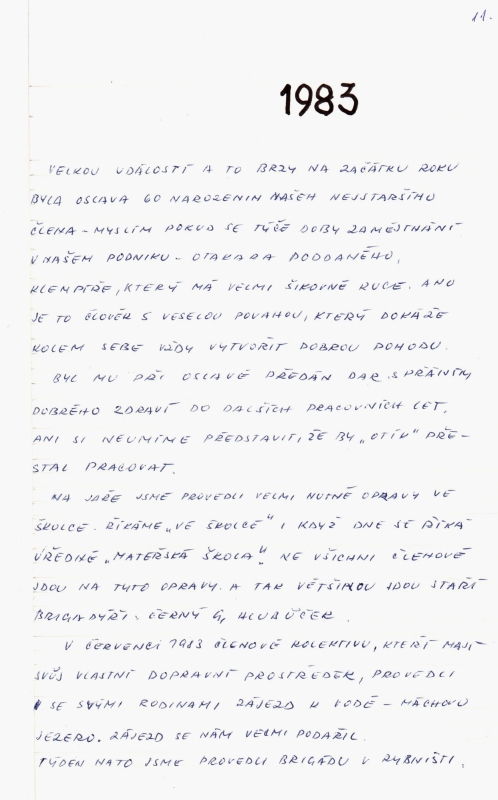 11.
1983
VELKOU UDÁLOSTÍ A TO BRZY NA ZAČÁTKU ROKU
BYLA OSLAVA 60 NAROZENIN NAŠEH NEJSTARŠÍHO
ČLENA - MYSLÍM POKUD SE TÝČE DOBY ZAMĚSTNÁNÍ
V NAŠEM PODNIKU - OTAKARA PODDANÉHO,
KLEMPÍŘE, KTERÝ MÁ VELMI ŠIKOVNÉ RUCE. ANO
JE TO ČLOVĚK S VESELOU POVAHOU, KTERÝ DOKÁŽE
KOLEM SEBE VŽDY VYTVOŘIT DOBROU POHODU.
BYL MU PŘI OSLAVĚ PŘEDÁN DAR S PŘÁNÍM
DOBRÉHO ZDRAVÍ DO DALŠÍCH PRACOVNÍCH LET,
ANI SI NEUMÍME PŘEDSTAVIT, ŽE BY „OTÍK" PŘE-
STAL PRACOVAT.
NA JAŘE JSME PROVEDLI VELMI NUTNÉ OPRAVY VE
ŠKOLCE. ŘÍKÁME „VE ŠKOLCE" I KDYŽ DNE SE ŘÍKÁ
ÚŘEDNĚ „MATEŘSKÁ ŠKOLA". NE VŠICHNI ČLENOVÉ
JDOU NA TYTO OPRAVY. A TAK VĚTŠINOU JDOU STAŘÍ
BRIGADÝŘI. ČERNÝ G, HLUBŮČEK.
V ČERVENCI 1983 ČLENOVÉ KOLEKTIVU, KTEŘÍ MAJÍ
SVŮJ VLASTNÍ DOPRAVNÍ PROSTŘEDEK, PROVEDLI
SE SVÝMI RODINAMI ZÁJEZD K VODĚ - MÁCHOVO
JEZERO. ZÁJEZD SE NÁM VELMI PODAŘIL.
TÝDEN NATO JSME PROVEDLI BRIGÁDU V RYBNIŠTI,